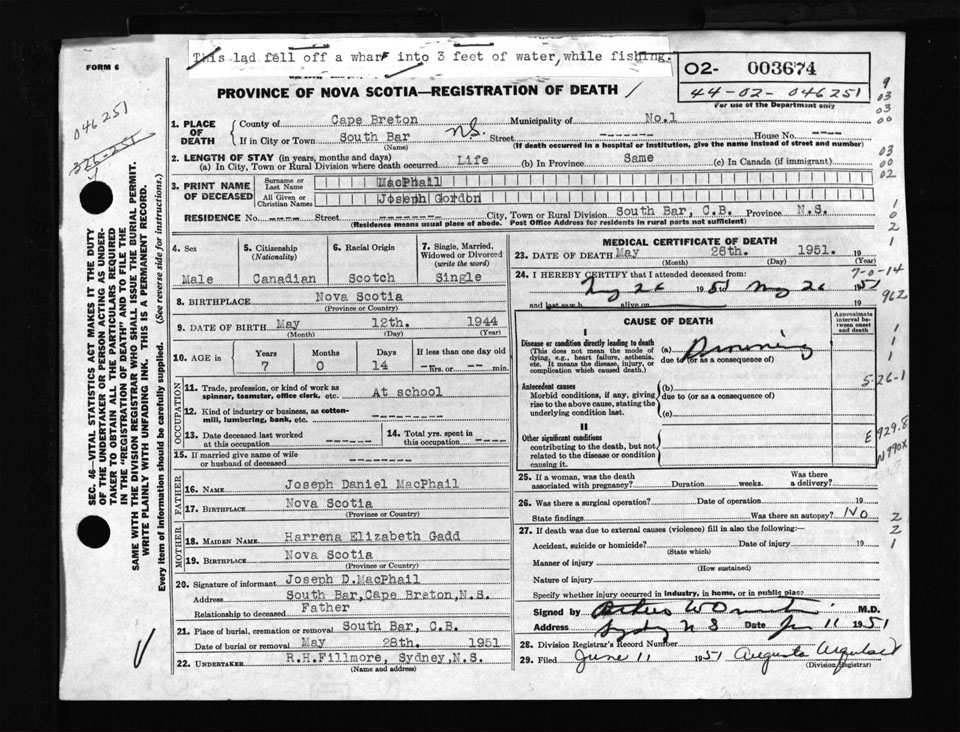 This lad fell off a wharf into 3 feet of water, while fishing.
FORM 6
O2- 003674
44-02-046251
For use of the Department only
PROVINCE OF NOVA SCOTIA—REGISTRATION OF DEATH
046251
326-251
SEC. 46—VITAL STATISTICS ACT MAKES IT THE DUTY
OF THE UNDERTAKER OR PERSON ACTING AS UNDER-
TAKER TO OBTAIN ALL THE PARTICULARS REQUIRED
IN THE "REGISTRATION OF DEATH" AND TO FILE THE
SAME WITH THE DIVISION REGISTRAR WHO SHALL ISSUE THE BURIAL PERMIT.
WRITE PLAINLY WITH UNFADING INK. THIS IS A PERMANENT RECORD.
Every item of information should be carefully supplied. (See reverse side for instructions.)
1. PLACE OF DEATH
County of Cape Breton Municipality of No.1
If in City or Town South Bar N.S. Street ------- House No. ----
(Name) (If death occurred in a hospital or institution, give the name instead of street and number)
2. LENGTH OF STAY (in years, months and days)
(a) In City, Town or Rural Division where death occurred Life (b) In Province Same (c) In Canada (if immigrant)
3. PRINT NAME OF DECEASED
Surname or Last Name MacPhail
All Given or Christian Names Joseph Gordon
RESIDENCE No. ---- Street -------- City, Town or Rural Division South Bar, C.B. Province N.S.
(Residence means usual place of abode. Post Office Address for residents in rural parts not sufficient)
4. Sex
Male
5. Citizenship (Nationality)
Canadian
6. Racial Origin
Scotch
7. Single, Married, Widowed or Divorced (write the word)
Single
8. BIRTHPLACE Nova Scotia
(Province or Country)
9. DATE OF BIRTH May 12th. 1944
(Month) (Day) (Year)
10. AGE in Years Months Days If less than one day old
7 0 14 -Hrs. or -- min.
OCCUPATION
11. Trade, profession, or kind of work as spinner, teamster, office clerk, etc. At school
12. Kind of industry or business, as cotton-mill, lumbering, bank, etc. ---------
13. Date deceased last worked at this occupation ------
14. Total yrs. spent in this occupation -----
15. If married give name of wife or husband of deceased --------
FATHER
16. NAME Joseph Daniel MacPhail
17. BIRTHPLACE Nova Scotia
(Province or Country)
MOTHER
18. MAIDEN NAME Harrena Elizabeth Gadd
19. BIRTHPLACE Nova Scotia
(Province or Country)
20. Signature of informant Joseph D.MacPhail
Address South Bar,Cape Breton,N.S.
Relationship to deceased Father
21. Place of burial, cremation or removal South Bar, C.B.
Date of burial or removal May 28th. 1951
22. UNDERTAKER R.H.Fillmore, Sydney,N.S.
(Name and address)
MEDICAL CERTIFICATE OF DEATH
23. DATE OF DEATH May 26th. 1951.
(Month) (Day) (Year)
24. I HEREBY CERTIFY that I attended deceased from: 7-0-14
May 26 1951 May 26 1951
and last saw h alive on 19 962
CAUSE OF DEATH
Approximate interval between onset and death
I
Disease or condition directly leading to death
(This does not mean the mode of dying, e.g., heart failure, asthenia, etc. It means the disease, injury, or complication which caused death.)
(a) Drowning
due to (or as a consequence of)
Antecedent causes
Morbid conditions, if any, giving rise to the above cause, stating the underlying condition last.
(b)
due to (or as a consequence of)
(c)
5-26-1
II
Other significant conditions
contributing to the death, but not related to the disease or condition causing it.
E929.8
N990X
25. If a woman, was the death associated with pregnancy? Duration weeks. Was there a delivery?
26. Was there a surgical operation? Date of operation 19
State findings Was there an autopsy? NO
27. If death was due to external causes (violence) fill in also the following:—
Accident, suicide or homicide? Date of injury 19
(State which)
Manner of injury
(How sustained)
Nature of injury
Specify whether injury occurred in industry, in home, or in public place
Signed by M.D.
Address Sydney N S Date Jun 11 1951
28. Division Registrar's Record Number
29. Filed June 11 1951 Augusta
(Division Registrar)
9
03
03
00
03
00
02
1
0
2
1
1
1
1
2
2
1